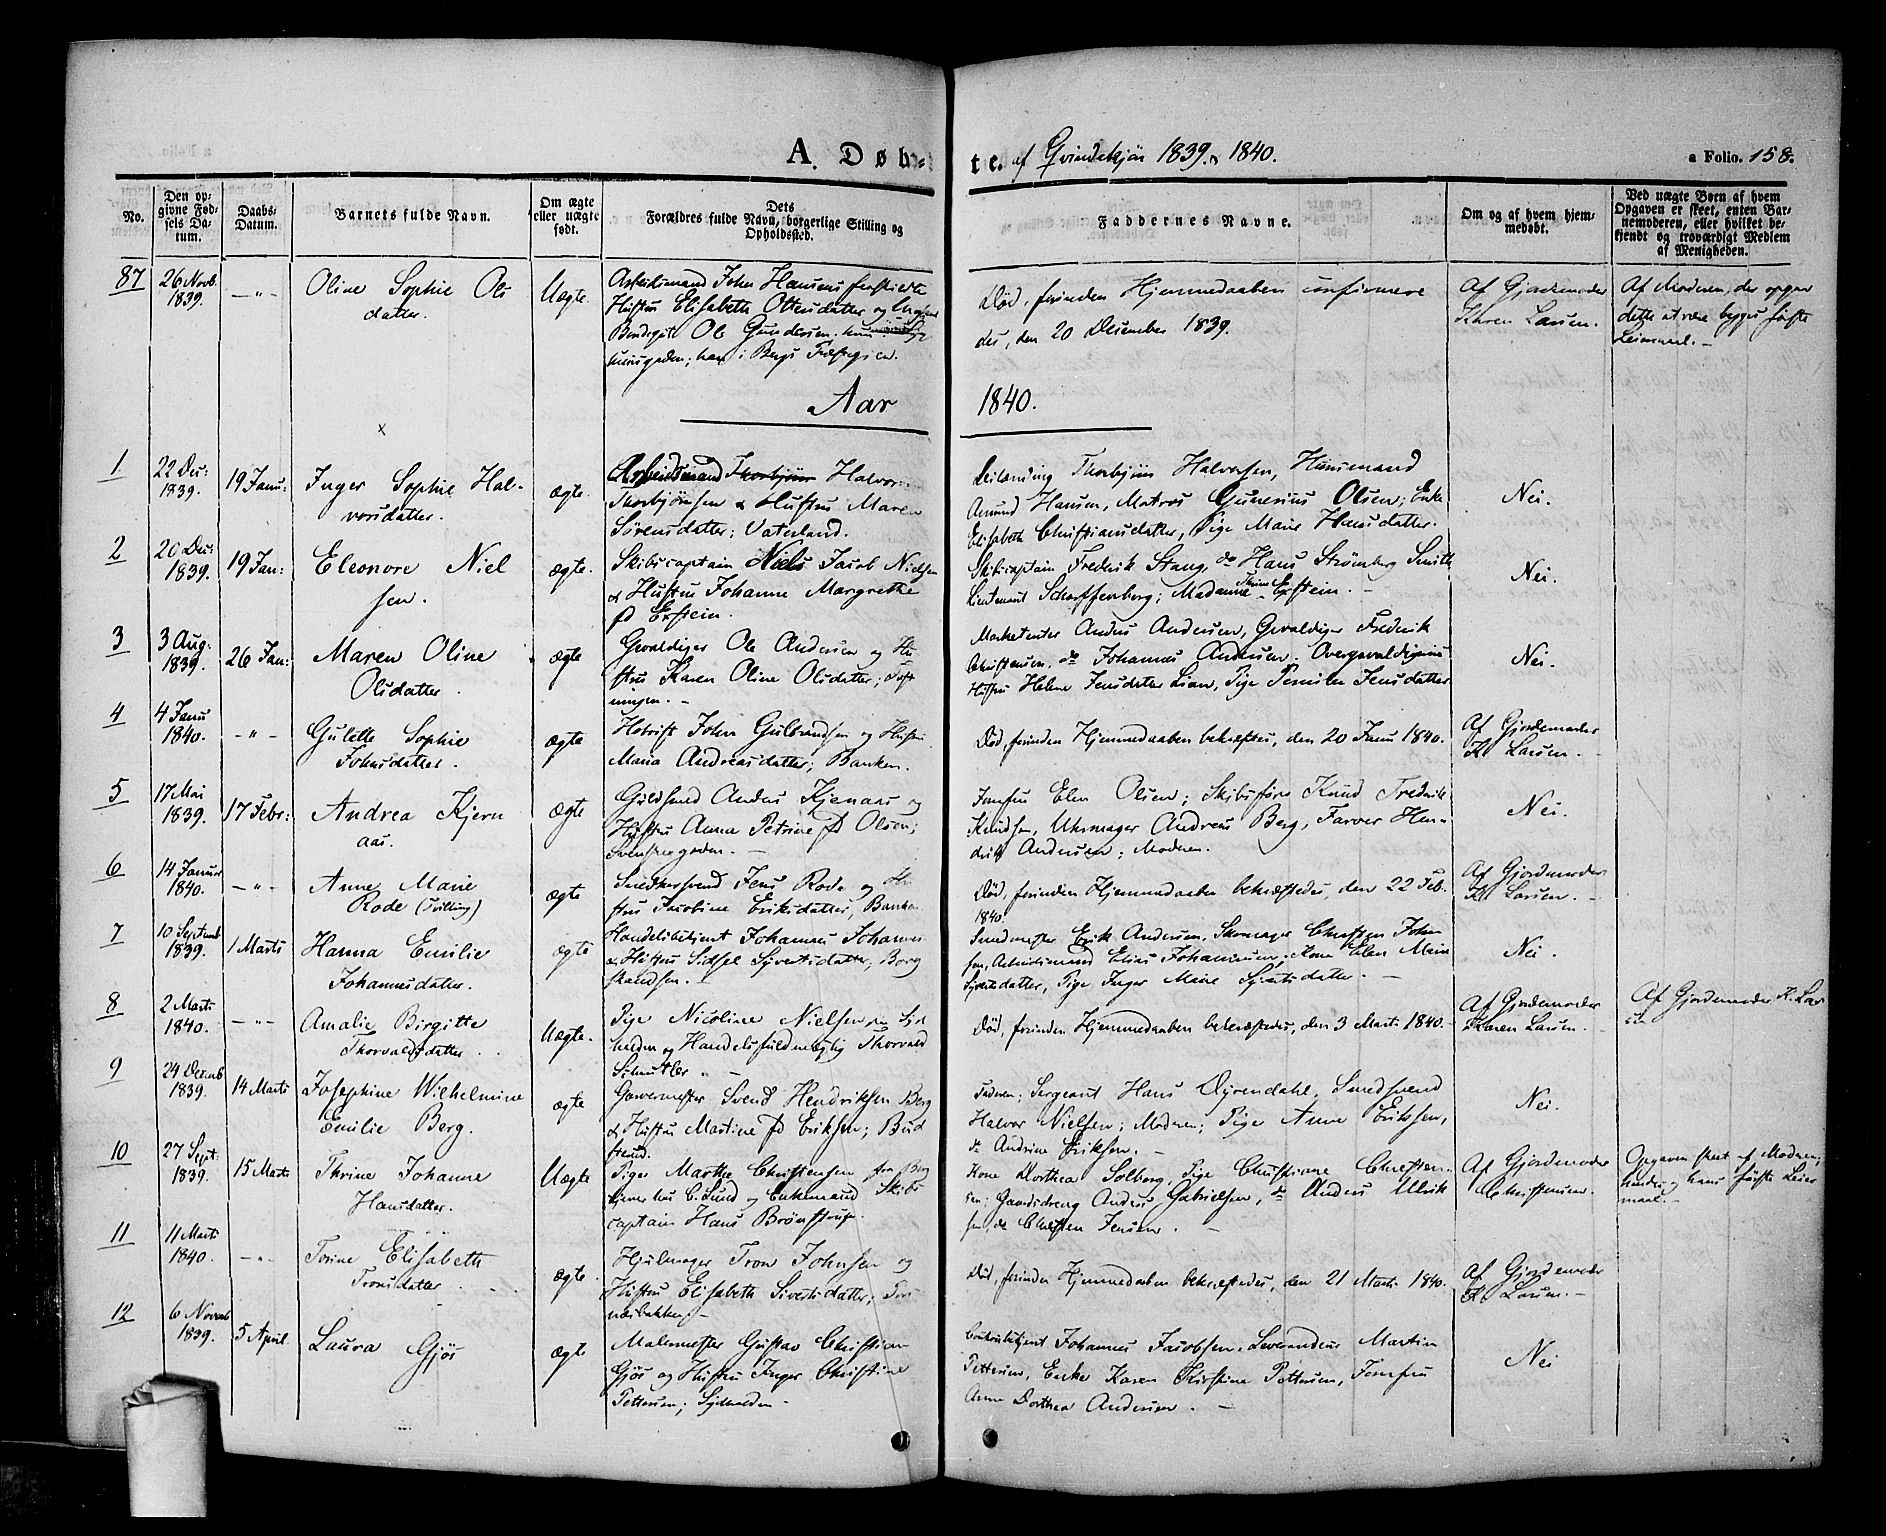 A. Døb=
te. af Qvindekjøn 1839 & 1840.
a Folio. 158.
No.
Den opgivne Fødsels Datum.
Daabs-Datum.
Barnets fulde Navn.
Om ægte eller uægte født.
Dets Forældres fulde Navn, borgerlige Stilling og Opholdssted.
Faddernes Navne.
Om og af hvem hjemmedøbt.
Ved uægte Børn af hvem Opgaven er skeet, enten Barnemoderen, eller hvilket bekjendt og troværdigt Medlem af Menigheden.
87
26 Novb.
1839.
—"—
Oline Sophie Ols
datter.
Uægte.
Arbeidsmand John Hansens
Hustru Elisabeth Olsdatter og
Ole Gundersen.
Død, forinden Hjemmedaaben confirmere
des, den 20 December 1839.
Af Gjordemoder
Karen Larsen.
Af Moderen, der opgav
dette at være begges første
Leiermaal. —
Aar 1840.
1
22 Dec:
1839.
19 Janu:
Inger Sophie Hal-
vorsdatter.
ægte.
Arbeidsmand Thorbjørn Halvor
Thorbjørnsen & Hustru Maren
Sørensdatter; Vaterland.
Thorbjørn Halvorsen, Huusmand
Amund Hansen, Matros Gunerius Olsen; Enke
Elisabeth Christiansdatter, Pige Maren Hansdatter.
Nei.
2
20 Dec:
1839.
19 Jan:
Eleonore Niel
sen.
ægte.
Skibscaptain Niels Jacob Nielsen
& Hustru Johanne Margrethe
fd Erstein.
Skibscaptain Frederik Stang, do Hans Strømberg Smith
Lieutenant Scharffenberg; Madamme Erstein. —
Nei.
3
3 Aug:
1839.
26 Jan:
Maren Oline
Olsdatter.
ægte
Gevaldiger Ole Andersen og Hu
stru Karen Oline Olsdatter;
Marketenter Anders Andersen, Gevaldiger Frederik
Christensen, do Johannes Andersen. Overgevaldigerens
Hustru Helene Jensdatter Lian, Pige Pernille Jensdatter
Nei.
4
4 Janu
1840.
—"—
Gulette Sophie
Johnsdatter.
ægte
John Gulbrandsen og Hustru
Maria Andreasdatter; Banken.
Død, forinden Hjemmedaaben bekræftes, den 20 Janu 1840.
Af Gjordemoder
K. Larsen. —
5
17 Mai
1839.
17 Febr:
Andrea Kjern
aas.
ægte
Guldsmed Anders Kjernaas og
Hustru Anna Petrine fd Olsen;
Jomfru Elen Olsen; Skibsfører Knud Frederik
Knudsen, Uhrmager Andreas Berg, Farver Hen-
drik Andersen; Moderen.
Nei.
6
14 Januar
1840.
—"—
Anne Marie
Rode (Tvilling)
ægte
Snedkersvend Jens Rode og Hu
stru Jacobine Eriksdatter, Banken
Død, forinden Hjemmedaaben bekræftedes, den 22 Feb.
1840.
Af Gjordemoder
K. Larsen. —
7
10 Septemb
1839.
1 Marts
Hanna Emilie
Johannesdatter.
ægte
Handelsbetjent Johannes Johannes
& Hustru Sidsel Syvertsdatter, Berg
Smedmester Erik Andersen, Skomager Christen John
sen, Arbeidsmand Elias Johannesen, Kone Elen Marie
Syvertsdatter, Pige Inger Marie Syvertsdatter. —
Nei.
8
2 Marts
1840.
—"—
Amalie Birgitte
Thorvaldsdatter.
Uægte.
Pige Nicoline Nielsen
og Handelsfuldmægtig Thorvald
Død, forinden Hjemmedaaben bekræftedes, den 3 Marts 1840.
Af Gjordemoder
Karen Larsen. —
Af Gjordemoder K. Lar
sen
9
24 Decemb
1839.
14 Marts
Josephine Wilhelmine
Emilie Berg.
ægte
Garvermester Svend Hendriksen Berg
& Hustru Martine fd Eriksen; Bud
Faderen; Sergeant Hans Dyrendahl, Smedsvend
Halvor Nielsen; Moderen; Pige Anne Eriksen,
do Andrine Eriksen. —
Nei.
10
27 Sept:
1839.
15 Marts
Thrine Johanne
Hansdatter.
Uægte
Pige Marthe Christensen fra Berg
hos C. Lund og Enkemand Skibs
captain Hans Brønstrup.
Kone Dorthea Solberg, Pige Christiane Christen
sen; Gaardsdreng Anders Gabrielsen, do Anders Ulrik
sen, do Christen Jensen. —
Af Gjordemoder
Christensen.
Opgaven skeet af Moderen;
hendes og hans første Leier
maal. —
11
11 Marts
1840.
—"—
Torine Elisabeth
Tronsdatter.
ægte.
Hjulmager Tron Johnsen og
Hustru Elisabeth Sivertsdatter;
Død, forinden Hjemmedaaben bekræftedes, den 21 Marts 1840.
Af Gjordemoder
K. Larsen. —
12
6 Novemb
1839.
5 April.
Laura Gjøs
ægte
Malermester Gustav Christian
Gjøs og Hustru Inger Christine
Pettersen; Sydhalden —
Contorbetjent Johannes Jacobsen, Martin
Pettersen, Enke Karen Kirstine Pettersen, Jomfru
Anne Dorthea Andersen. —
Nei